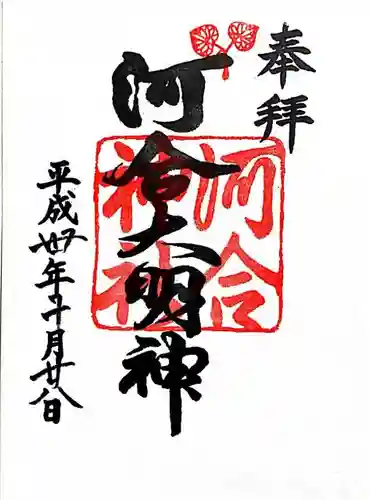 奉拝
河合大明神
河合
神社
平成
年十月廿八日